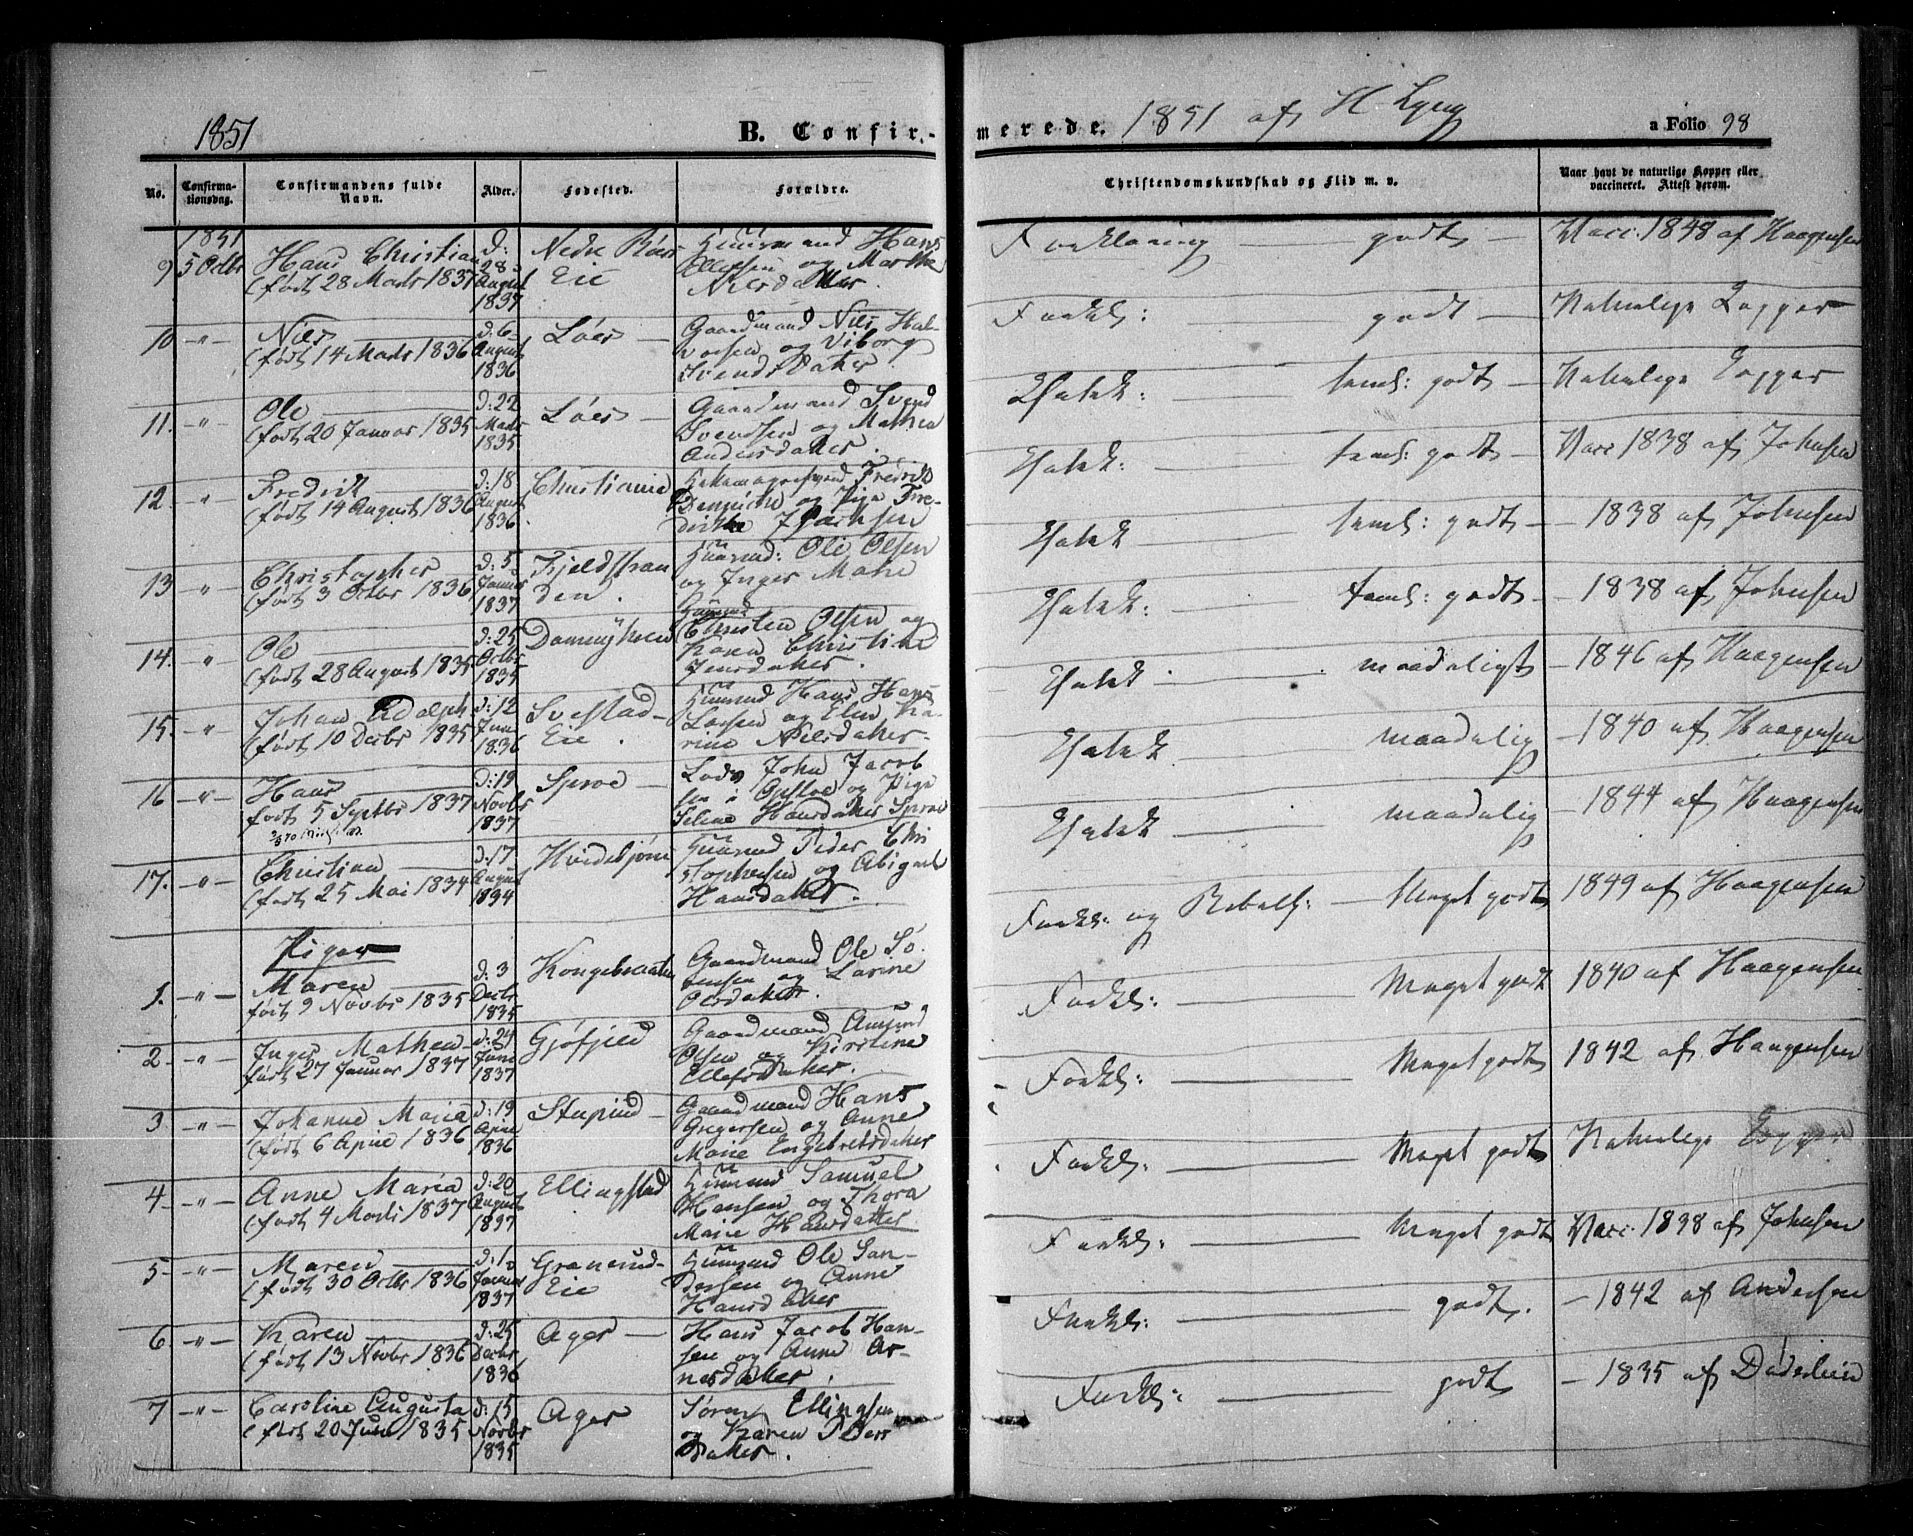 1851
B. Confir-
merede. 1851 af H Lyng
a Folio 98
No.
Confirma-
tionsdag.
Confirmandens fulde
Navn.
Alder.
Fødested.
Forældre.
Christendomskundskab og Flid m. v.
Naar havt de naturlige Kopper eller
vaccineret. Attest derom.
1851
9 5 Octbr Hans Christian
(født 28 Marts 1837
d: 28
August
1837
Eie
Huusmand Hans
Ellefsen og Marthe
Nilsdatter.
Forklaring — godt — Vacc: 1848 af Haagensen
10 -"- Nils
(født 14 Marts 1836
d: 6
August
1836
Løes —
Gaardmand Nils Hal-
vorsen og Viborg
Svendsdatter.
Forkl: — godt — Naturlige Kopper
11. -"- Ole
(født 20 Januar 1835
d: 22
Marts
1835
Løes —
Gaardmand Svend
Svendsen og Mathea
Andersdatter.
teml: godt — Naturlige Kopper
12. " Fredrik
(født 14 August 1836
d: 18
August
1836.
Christiania
Fredrik
og Pige Fre-
derikke
teml: godt — Vacc 1838 af Johnsen
13 -"- Christopher
(født 3 Octbr 1836
d: 5
Januar
1837
Fjeldstran
den.
Huusmd: Ole Olsen
og Inger Marie
teml: godt — 1838 af Johnsen
14. " Ole
(født 28 August 1835
d: 25
Octbr
1835
Huusmd
Christen Olsen og
Karen Christine
Jensdatter.
teml: godt — 1838 af Johnsen
15. " Johan Adolph
(født 10 Decbr 1835
d: 12
Juni
1836
Svestad-
Eie.
Huusmd Hans Hans
Larsen og Elen Ka-
rine Nilsdatter.
maadeligt — 1846 af Haagensen
16 -"- Hans
født 5 Septbr 1837
d: 19
Novbr
1837
Sproe —
John Jacob
sen i Opsloe og Pige
Hansdatter Sproe
maadelig — 1840 af Haagensen
17. -"- Christian
(født 25 Mai 1834
d: 17
August
1834
Hvidebjørn
Huusmd Peder Chri
stophersen og Abigael
Hansdatter.
maadelig — 1844 af Haagensen
Piger
1. -"- Maren
født 9 Novbr 1835
d: 3
Decbr
1835
Gaardmand Ole Sø-
rensen og Larine
Olesdatter.
Forkl: og — Meget godt 1849 af Haagensen
2 -"- Inger Mathea
født 27 Januar 1837
1837
Gjøfjeld
Gaardmand Amund
Olsen og Kirstine
Ellefsdatter.
Forkl: — Meget godt 1840 af Haagensen
3 -"- Johanne Maria
(født 6 April 1836
d: 19
April
1836
Gaardmand Hans
Gregersen og Anne
Marie Engebretsdatter
Forkl: — Meget godt 1842 af Haagensen
4 -"- Anne Maria
(født 4 Marts 1837
d: 20
August
1837
Ellingstad
Huusmd Samuel
Hansen og Thora
Marie Hansdatter
Forkl: — Meget godt Naturlige Kopper
5 -"- Maren
(født 30 Octbr 1836
d: 1
Januar
1837
Granerud-
Eie
Huusmd Ole San-
dersen og Anne
Hansdatter
Forkl: — Meget godt Vacc: 1838 af Johnsen
6 -"- Karen
(født 13 Novbr 1836
d: 25
Decbr
1836
Ager —
Hans Jacob Han-
sen og Anne Ar-
nesdatter.
Forkl: — godt. — 1842 af Andersen
7 -"- Caroline Augusta
(født 20 Juni 1835
d: 15
Novbr
1835
Ager
Søren Ellingsen
og Karen
datter.
Forkl: — godt — 1835 af Døderlein